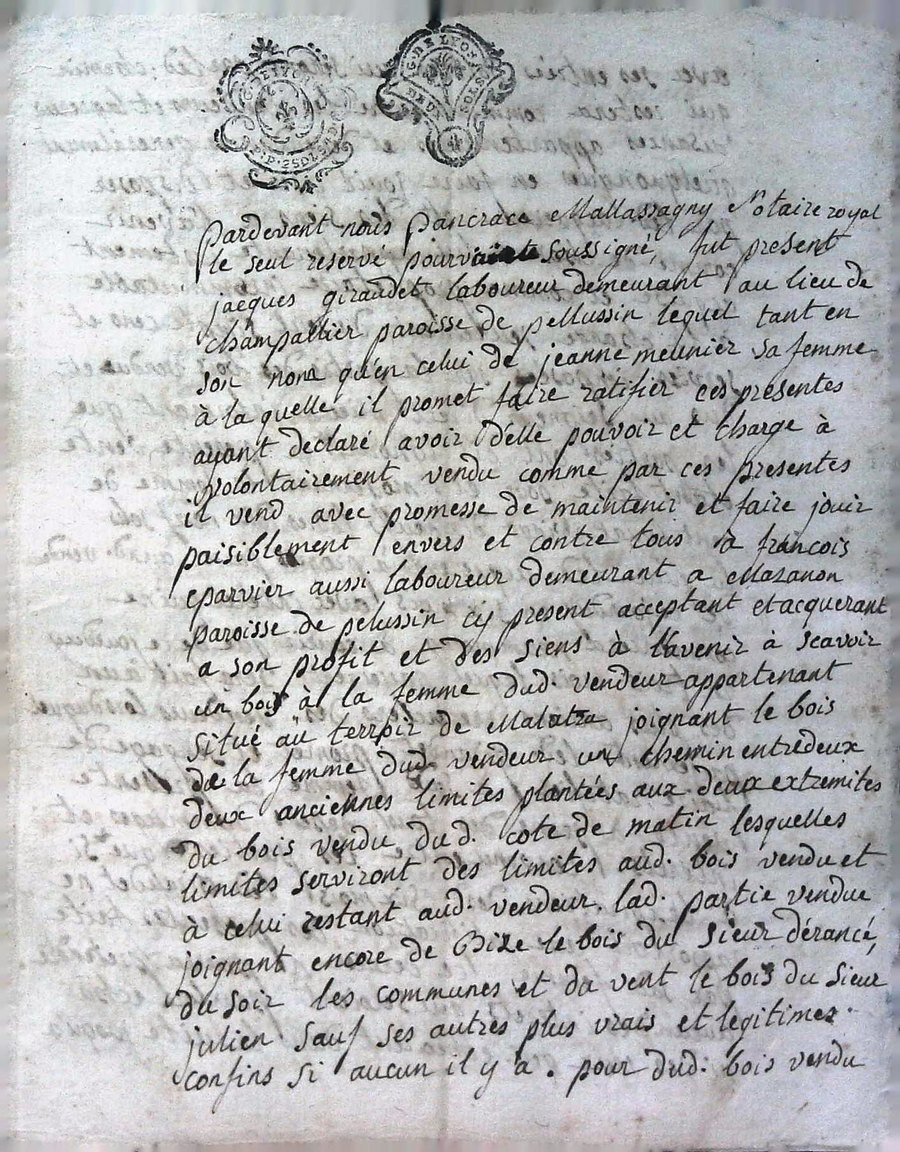 G. DE LYON
G. DE LYON
Pardevant nous Pancrace Mallassagny Notaire royal
le seul reservé pour soussigné, fut present
jacques giraudet laboureur demeurant au lieu de
champallier paroisse de pellussin lequel tant en
son nom qu'en celui de jeanne meunier sa femme
à la quelle il promet faire ratifier ces présentes
ayant declaré avoir d'elle pouvoir et charge à
volontairement vendu comme par ces presentes
il vend avec promesse de maintenir et faire jouir
paisiblement envers et contre tous a françois
eparvier aussi laboureur demeurant a Mazanon
paroisse de pelussin cy present acceptant et acquerant
a son profit et des siens à l'avenir à scavoir
un bois à la femme dud. vendeur appartenant
situé au terroir de Malatra joignant le bois
de la femme dud. vendeur un chemin entredeux
deux anciennes limites plantées aux deux extremites
du bois vendu dud. cote de matin lesquelles
limites serviront des limites aud. bois vendu et
à celui restant aud. vendeur. lad. partie vendue
joignant encore de Bize le bois du sieur dérancé,
du soir les communes et du vent le bois du sieur
julien sauf ses autres plus vrais et legitimes
confins si aucun il y à. pour dud. bois vendu